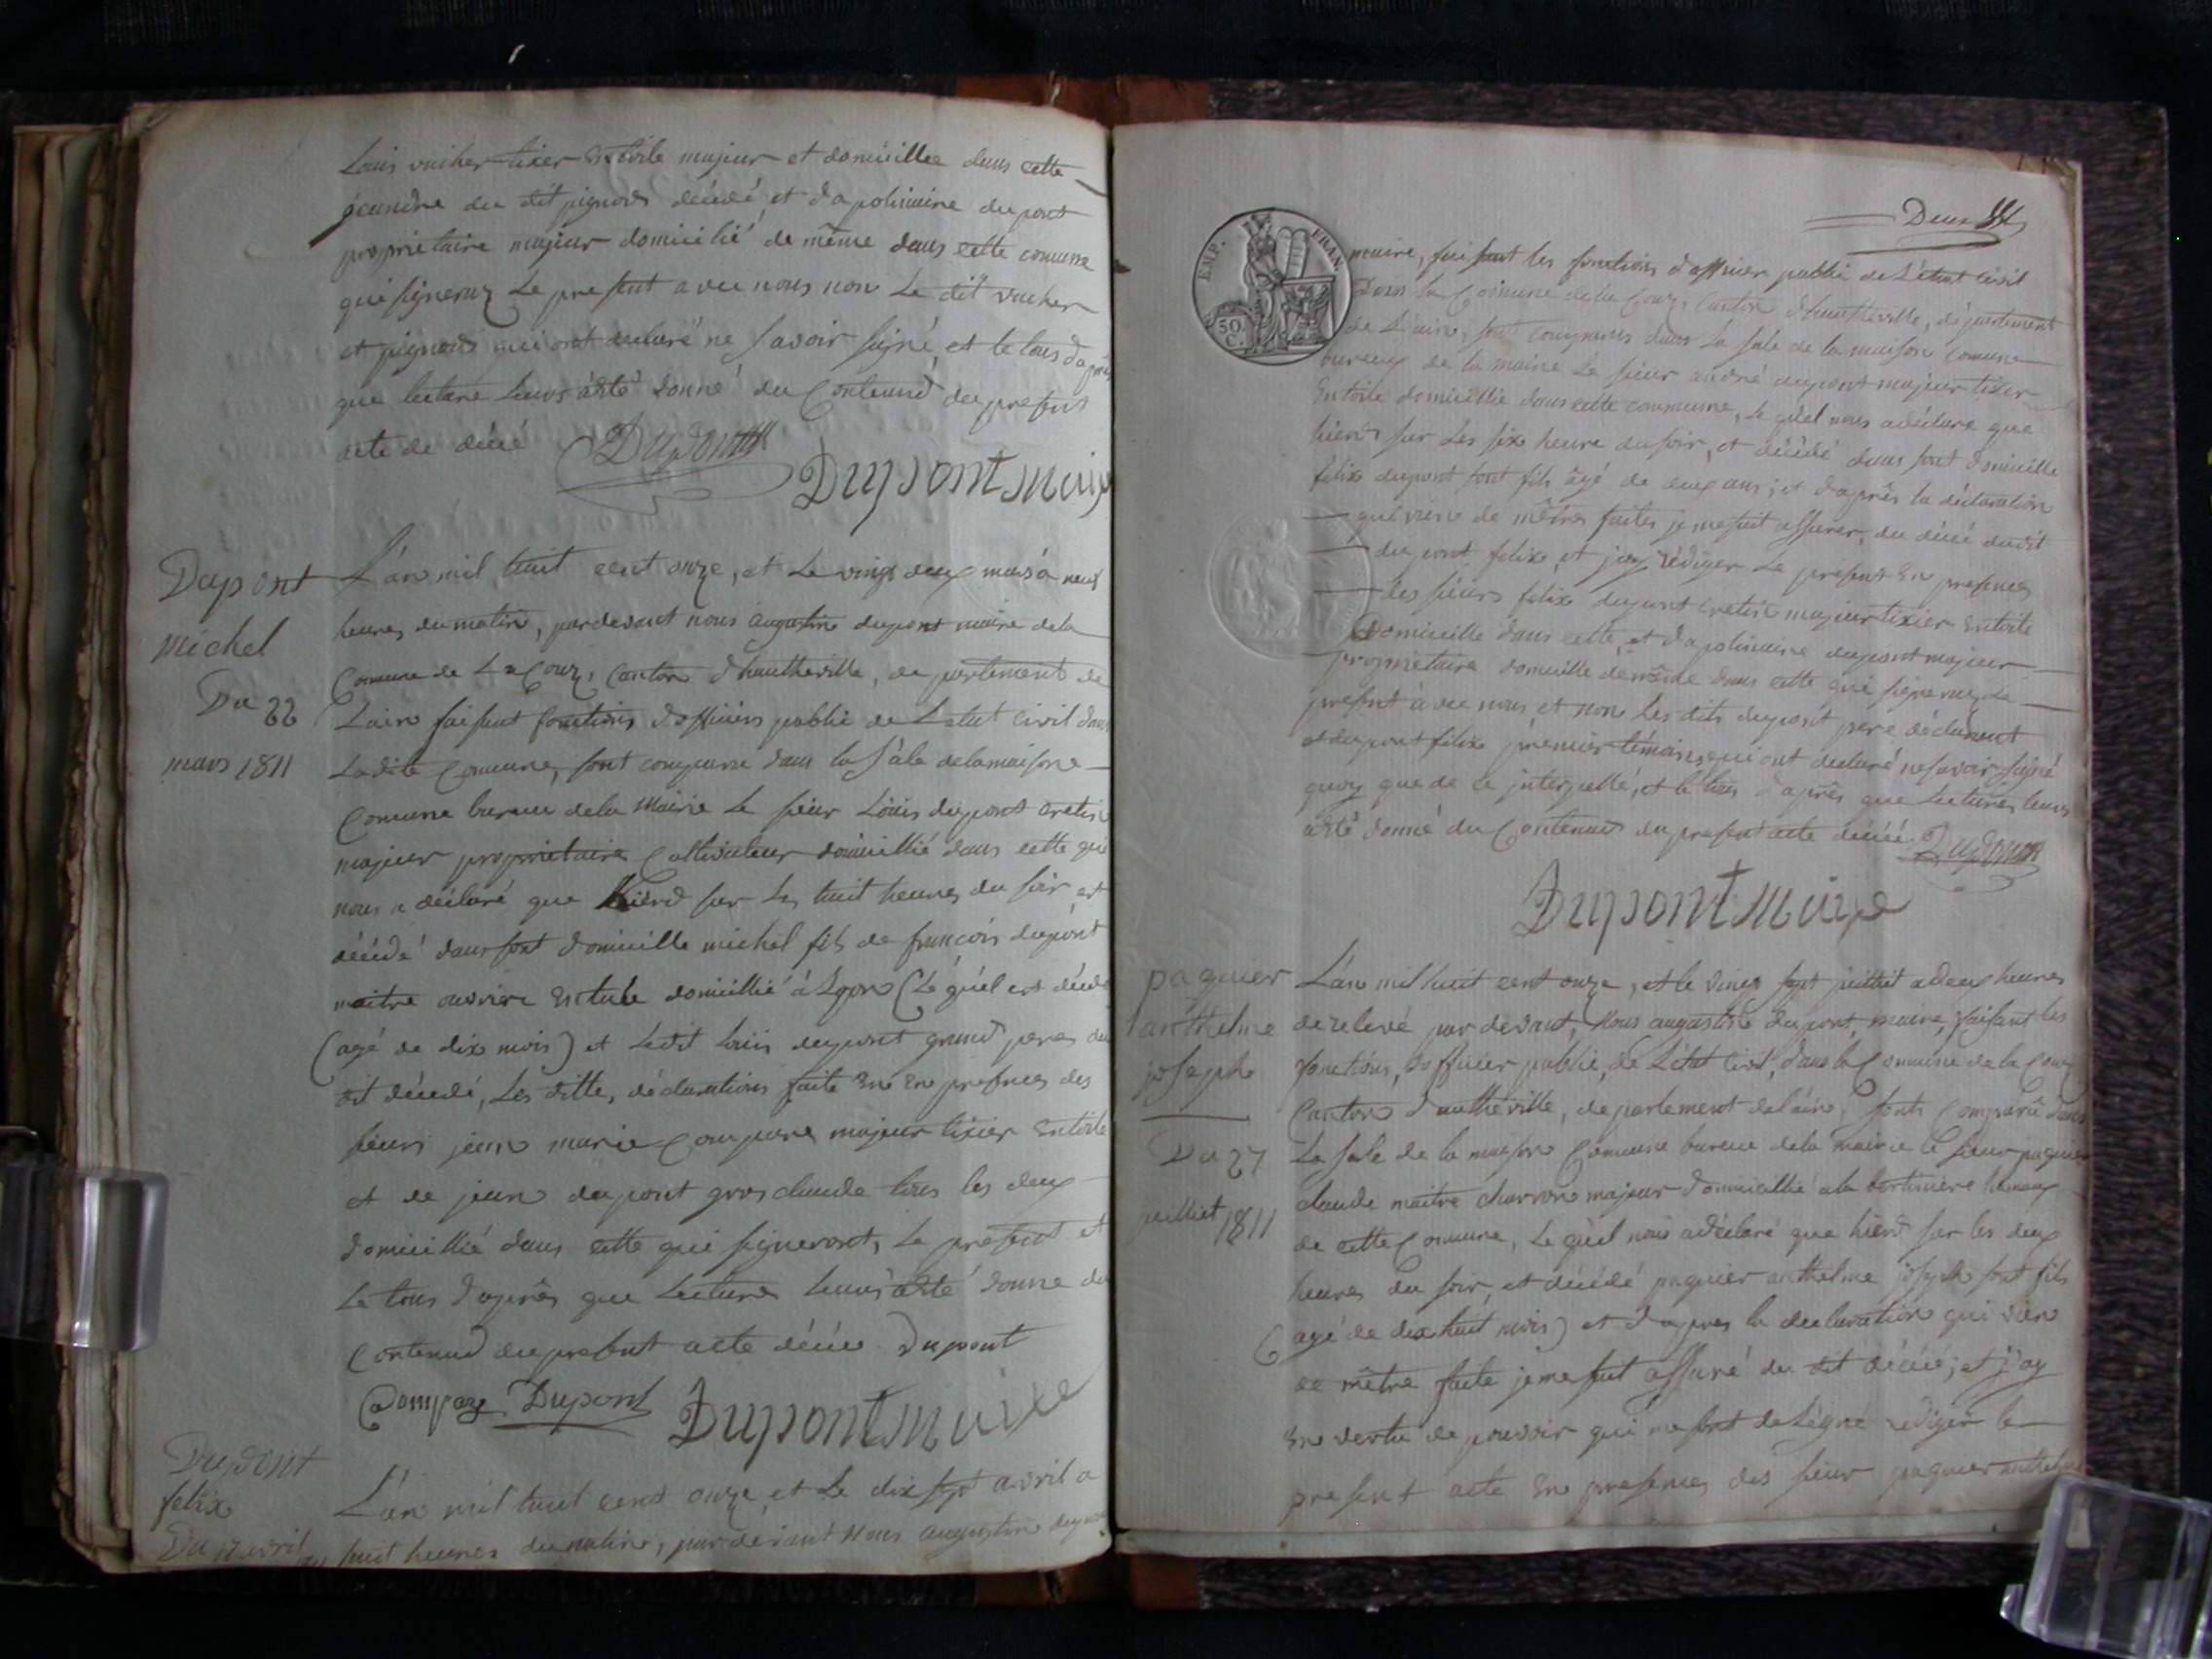 Louis vucher tixier en toile majeur et domicillee dans cette
geandre du dit pignod décédé, et d'apolinaire dupont
proprietaire majeur domicilié de même dans cette comune
qui signeron le present avec nous non le dit vucher
et pignod qui ont declaré ne savoir signé, et le tous d'aprês
que lecture leurs àété donné du Contenud du present
acte de décé Dupont
Dupont Maire
Dupont
michel
Du 22
mars 1811
L'àn mil huit cent onze, et le vingt deux mars à neuf
heures du matin, pardevant nous augustin dupont maire dela
Comune de La Coux, Canton d'hautheville, departement de
Lain faisant fonctions d'officiers public de L'etat Civil dans
Ladite Comune, sont comparu dans la sale delamaison
Comune bureau dela Mairie Le sieur Loüis dupont cretin
majeur proprietaire Cultivateur domicillié dans cette qui
nous a déclaré que hierd sur les huit heures du soir est
décédé dans sont domicille michel fils de francois dupont
maitre ouvrier domicillié à Lyon (Le quel est décédé
(agé de dix mois) et Ledit Loüis dupont grand pere du
dit décédé, Les ditte, déclarations faite En En presences des
sieurs jean marie Compare majeur tixier En toile
et de jean dupont gros claude tous les deux
domicillié dans cette qui signeront, Le present et
Le tous d'aprês que Lecture leurs àété donne du
Contenud du present acte décée Dupont
Compare Dupont Dupont Maire
Dupont
felix
Du 17 avril
L'àn mil huit cent onze et Le dix sept avril a
huit heures du matin, pardevant Nous augustin dupont
Deux
EMP. FRAN.
50 C.
maire, faisant les fonctions d'officier public de L'état Civil
Dans la Comune de la Coux, Canton d'hautheville, departement
de L'ain, sont comparus dans La sale de la maison comune
bureau de la mairie Le sieur andré dupont majeur tixier
En toile domicillié dans cette commune, Le quel nous adéclare que
hierd sur Les six heure du soir, et décédé dans sont domicille
felix dupont sont fils âgé de deux ans; et d'aprês la déclaration
qui vien de mêtre faites je me suit assurer, du décée dudit
dupont felix et j'ay rédiger Le present En presences
des sieurs felix dupont cretin majeur tixier En toile
domicille dans cette, et d'apolinaire dupont majeur
proprietaire domicille de même dans cette qui signeron, Le
present à vec nous, et non les dits dupont pere déclarent
et dupont felix premier témoins, qui ont declaré ne savoir signé
quoy que de ce interpellé, et le tous d'aprês que Lectures leurs
àété donné du Contenud du present acte décée. Dupont
Dupont Maire
paquier
anthelme
joseph
Du 27
juilliet 1811
L'an mil huit cent onze, et le vingt sept juilliet a deux heures
de relevé par devant, Nous augustin dupont, maire, faisant les
fonctions, d'officier public, de L'état Civil, dans la Comune de la Coux
Canton d'autheville, departement de l'ain, sonts Comparû dans
La sale de la maison Comune bureau dela mairie le sieur paquier
claude maitre charron majeur domicillié ala hameaux
de cette Comune, Le quel nous adéclaré que hierd sur les deux
heures du soir, et décédé paquier anthelme joseph sont fils
(agé de dix huit mois) et d'apres la declaration qui vien
de mêtre faite je me suit assuré du dit décée; et j'ay
En vertu de pouvoir qui me sont délégué rediger le
present acte En presences des sieur paquier anthelme